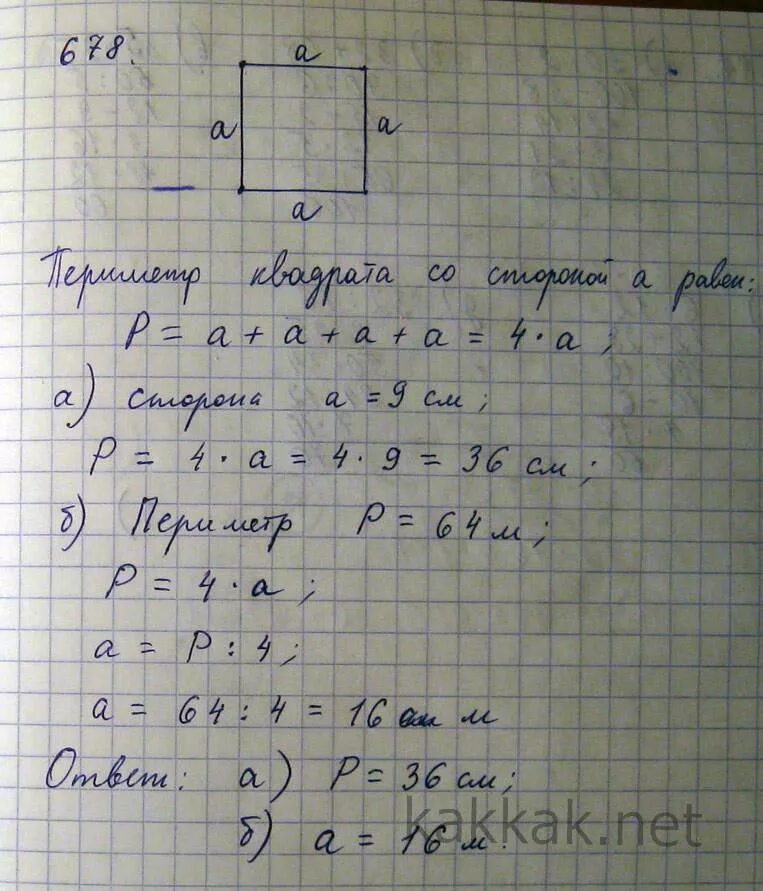 678.
a
a a
a
Периметр квадрата со стороной а равен:
P = a + a + a + a = 4 · a ;
а) сторона a = 9 см ;
P = 4 · a = 4 · 9 = 36 см ;
б) Периметр P = 64 м ;
P = 4 · a ;
a = P : 4 ;
a = 64 : 4 = 16 м
Ответ: а) P = 36 см ;
kakkak.net
б) a = 16 м.